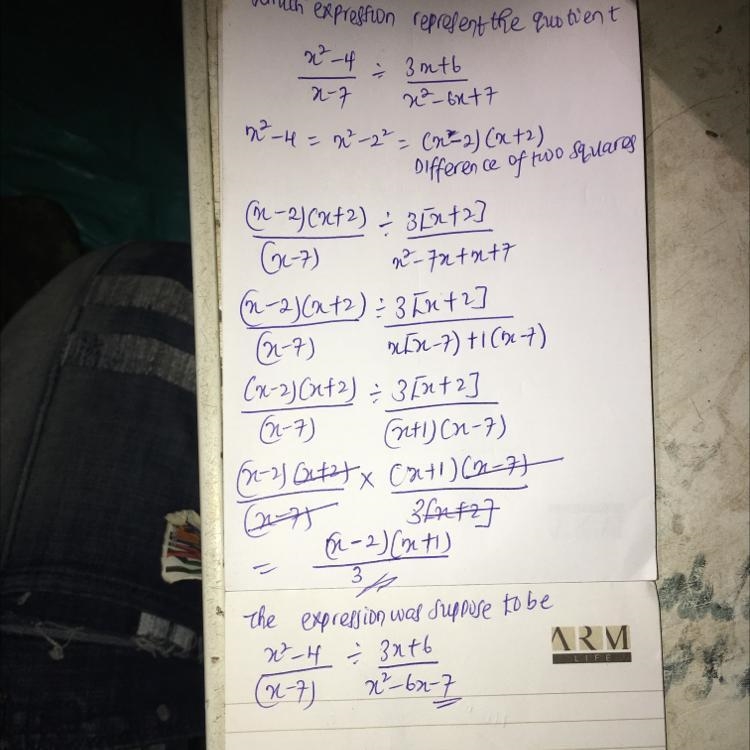 which expression represent the quotient
x²-4/x-7 ÷ 3x+6/x²-6x+7
x²-4 = x²-2² = (x-2)(x+2)
Difference of two squares
(x-2)(x+2)/(x-7) ÷ 3[x+2]/x²-7x+x+7
(x-2)(x+2)/(x-7) ÷ 3[x+2]/x[x-7)+1(x-7)
(x-2)(x+2)/(x-7) ÷ 3[x+2]/(x+1)(x-7)
(x-2)(x+2)/(x-7) × (x+1)(x-7)/3[x+2]
= (x-2)(x+1)/3
The expression was suppose to be
x²-4/(x-7) ÷ 3x+6/x²-6x-7
ARM
LIFE